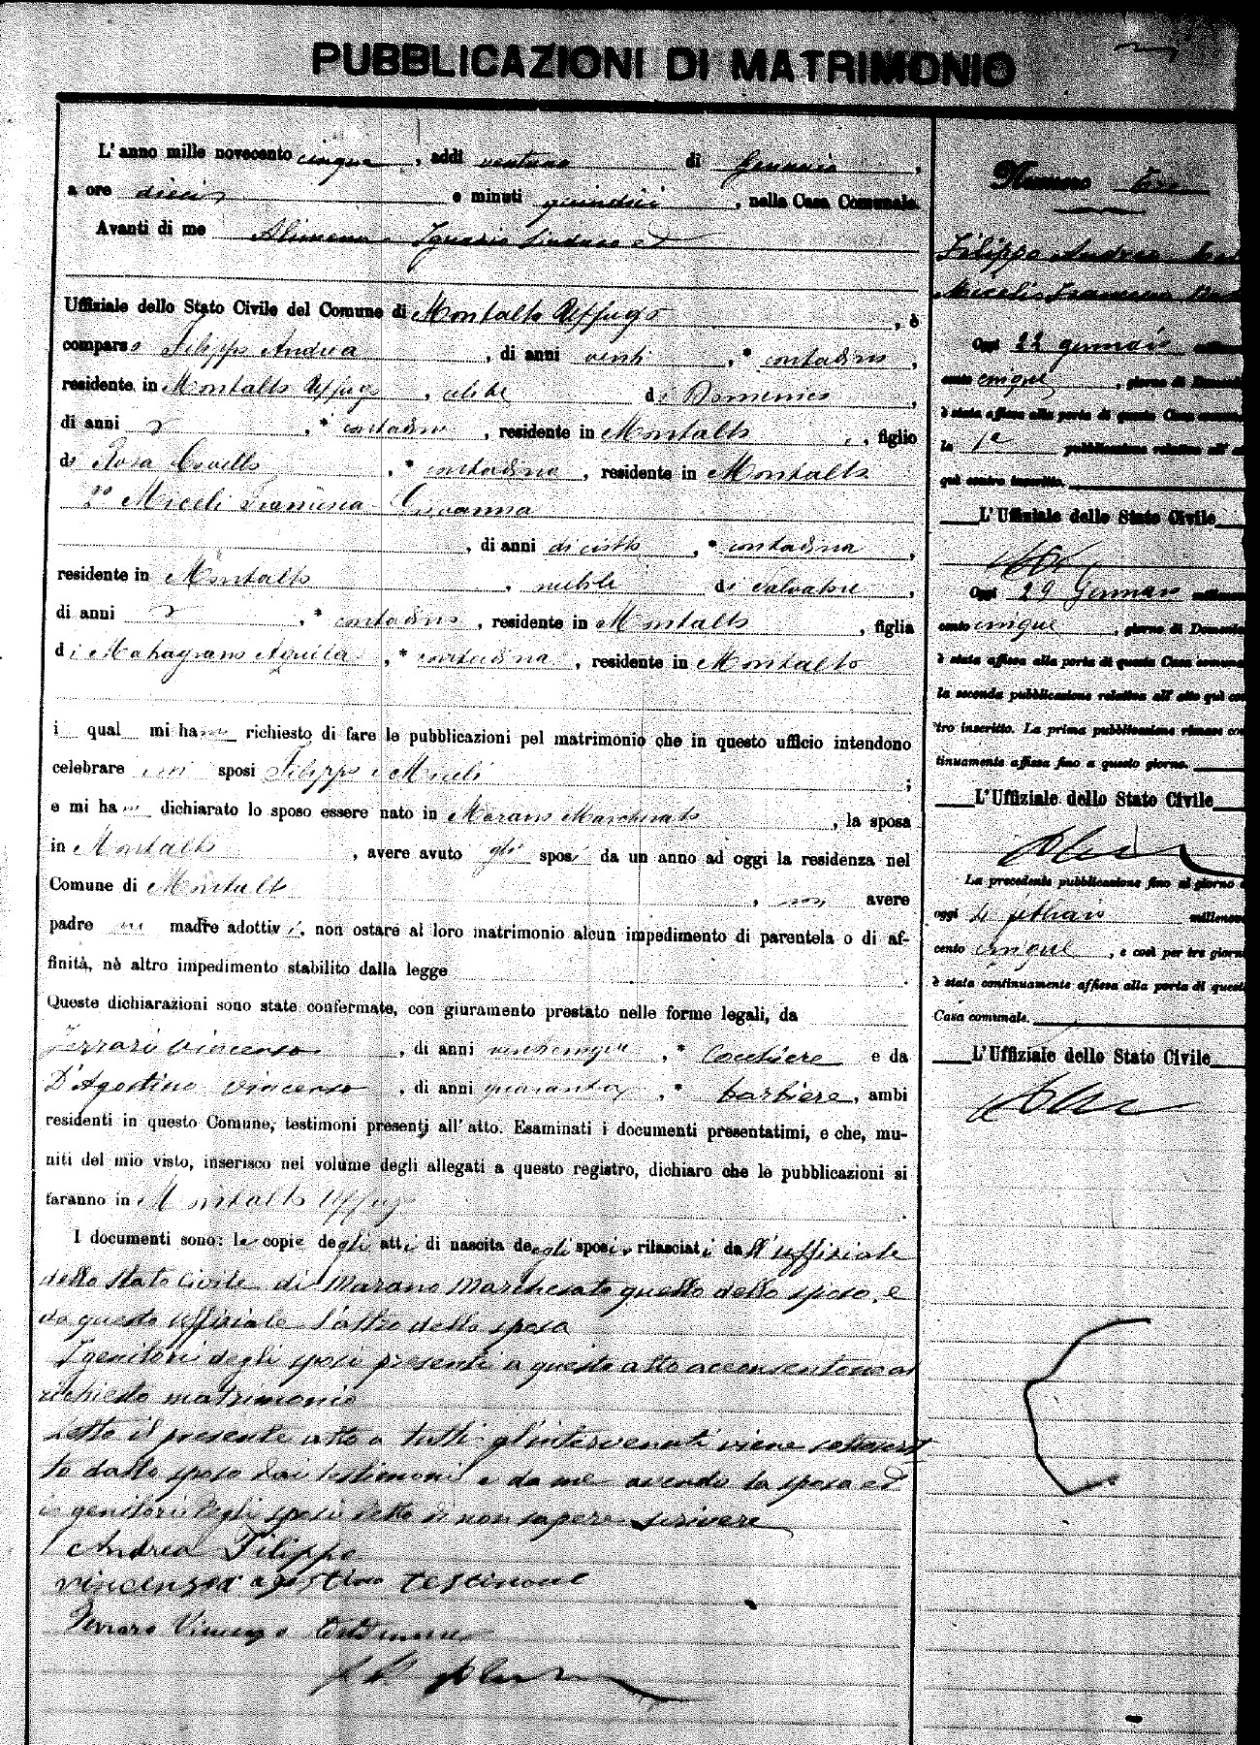 PUBBLICAZIONI DI MATRIMONIO
L'anno mille novecento cinque, addì ventuno di Gennaio,
a ore dieci e minuti quindici, nella Casa Comunale.
Avanti di me Alimena Ignazio Sindaco ed
Uffiziale dello Stato Civile del Comune di Montalto Uffugo, è
comparso Filippo Andrea, di anni venti, * contadino,
residente in Montalto Uffugo, celibe di Domenico,
di anni, * contadino, residente in Montalto, figlio
di Rosa Covello, * contadina, residente in Montalto
2º Miceli Francesca Giovanna
, di anni diciotto, * contadina,
residente in Montalto, nubile di Salvatore,
di anni, * contadino, residente in Montalto, figlia
di Aquila, * contadina, residente in Montalto
i qual mi hanno richiesto di fare le pubblicazioni pel matrimonio che in questo ufficio intendono
celebrare essi sposi Filippo e Miceli;
e mi han dichiarato lo sposo essere nato in Marano Marchesato, la sposa
in Montalto, avere avuto gli sposi da un anno ad oggi la residenza nel
Comune di Montalto, non avere
padre nè madre adottivi, non ostare al loro matrimonio alcun impedimento di parentela o di af-
finità, nè altro impedimento stabilito dalla legge.
Queste dichiarazioni sono state confermate, con giuramento prestato nelle forme legali, da
Ferrari Vincenzo, di anni venticinque, * Cocchiere e da
D'Agostino Vincenzo, di anni quaranta, * barbiere, ambi
residenti in questo Comune, testimoni presenti all'atto. Esaminati i documenti presentatimi, e che, mu-
niti del mio visto, inserisco nel volume degli allegati a questo registro, dichiaro che le pubblicazioni si
faranno in Montalto Uffugo.
I documenti sono: le copie degli atti di nascita degli sposi rilasciati dall'uffiziale
dello Stato Civile di Marano Marchesato quello dello sposo, e
da questo uffiziale l'altro della sposa
I genitori degli sposi presenti a questo atto acconsentono al
richiesto matrimonio
Letto il presente atto a tutti gl'intervenuti viene sottoscrit
to dallo sposo dai testimoni e da me avendo la sposa ed
i genitori degli sposi detto di non sapere scrivere
Andrea Filippo
vincenzo d agostino testimone
Ferraro Vincenzo testimone
Numero tre
Filippo Andrea
Miceli Francesca
Oggi 22 gennaio millenove
cento cinque, giorno di Domenica
è stata affissa alla porta di questa Casa comunale
la 1ª pubblicazione relativa all'
quì contro inscritto.
L'Uffiziale dello Stato Civile
Oggi 29 Gennaio millenove
cento cinque, giorno di Domenica
è stata affissa alla porta di questa Casa comunale
la seconda pubblicazione relativa all'atto quì con
tro inscritto. La prima pubblicazione rimase con
tinuamente affissa fino a questo giorno.
L'Uffiziale dello Stato Civile
La precedente pubblicazione fino al giorno
oggi 4 febbraio millenove
cento cinque, e così per tre giorni
è stata continuamente affissa alla porta di questa
Casa comunale.
L'Uffiziale dello Stato Civile